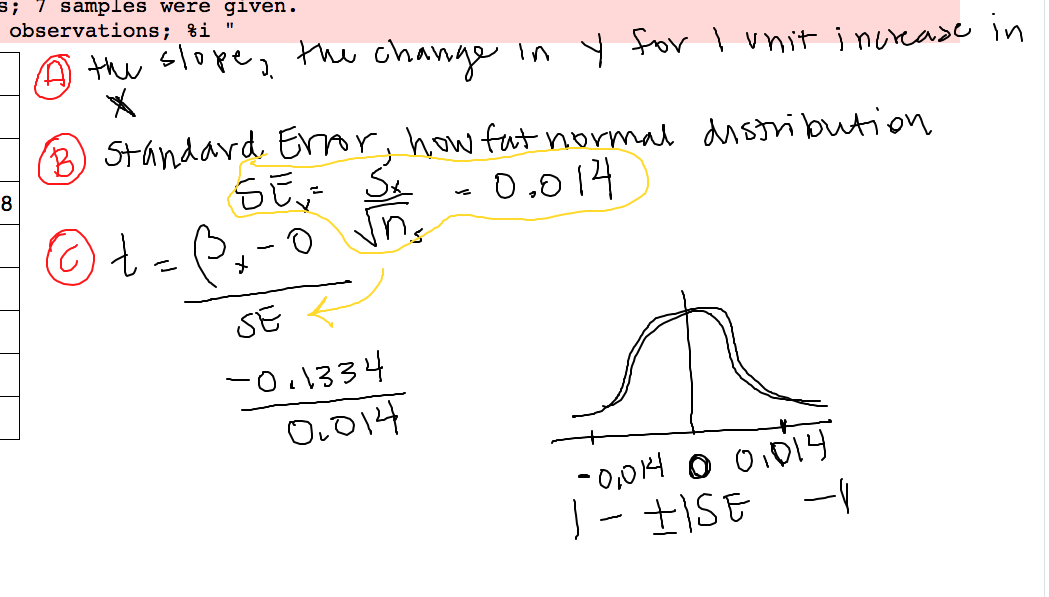 s; 7 samples were given.
observations; %i "
8
A the slope, the change in y for 1 unit increase in
x
B Standard Error, how fat normal distribution
SEx = Sx / √ns = 0.014
C t = βx - 0
SE
-0.1334
0.014
-0.014 0 0.014
1 - ±1SE